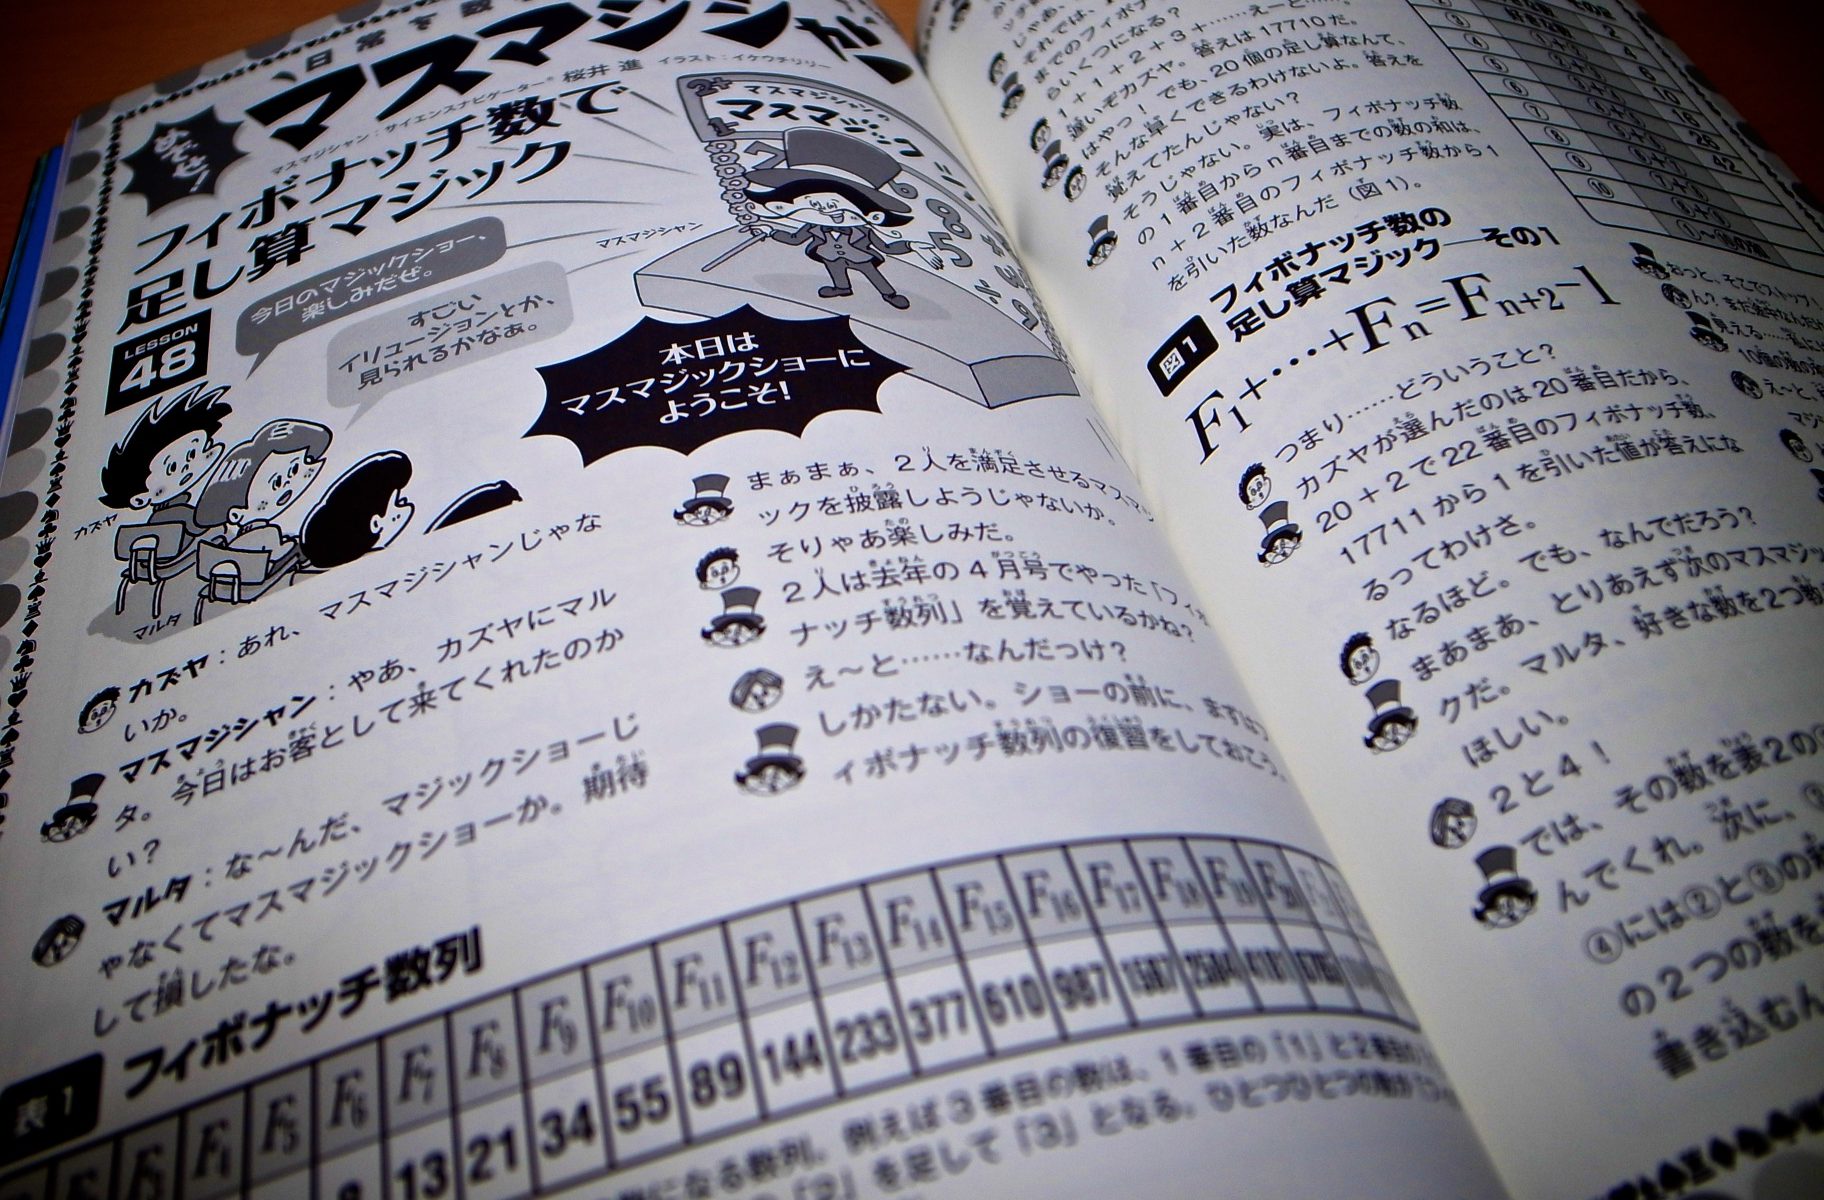 日常を
めざせ!
マスマジシャン
マスマジシャン:サイエンスナビゲーター® 桜井 進 イラスト:イケウチリリー
フィボナッチ数で
足し算マジック
LESSON
48
今日のマジックショー、
楽しみだぜ。
すごい
イリュージョンとか、
見られるかなあ。
マスマジシャンの
マスマジック
マスマジシャン
本日は
マスマジックショーに
ようこそ!
カズヤ
マルタ
カズヤ:あれ、マスマジシャンじゃな
いか。
マスマジシャン:やあ、カズヤにマル
タ。今日はお客として来てくれたのか
い?
マルタ:な〜んだ、マジックショーじ
ゃなくてマスマジックショーか。期待
して損したな。
まぁまぁ、2人を満足させるマスマジ
ックを披露しようじゃないか。
そりゃあ楽しみだ。
2人は去年の4月号でやった「フィボ
ナッチ数列」を覚えているかね?
え〜と……なんだっけ?
しかたない。ショーの前に、まずは
ィボナッチ数列の復習をしておこう。
表1 フィボナッチ数列
F3 F4 F5 F6 F7 F8 F9 F10 F11 F12 F13 F14 F15 F16 F17 F18 F19 F20
8 13 21 34 55 89 144 233 377 610 987 1597 2584 4181 6765
になる数列。例えば3番目の数は、1番目の「1」と2番目の
「2」を足して「3」となる。ひとつひとつの数が「フィ
じゃあ、
それでは、1
までのフィボナ
らいくつになる?
1+1+2+3+……えーと……。
遅いぞカズヤ。答えは17710だ。
はやっ! でも、20個の足し算なんて、
そんな早くできるわけないよ。答えを
覚えてたんじゃない?
そうじゃない。実は、フィボナッチ数
の1番目からn番目までの数の和は、
n+2番目のフィボナッチ数から1
を引いた数なんだ(図1)。
図1
フィボナッチ数の
足し算マジック―その1
F1+・・・+Fn=Fn+2−1
つまり……どういうこと?
カズヤが選んだのは20番目だから、
20+2で22番目のフィボナッチ数、
17711から1を引いた値が答えにな
るってわけさ。
なるほど。でも、なんでだろう?
まあまあ、とりあえず次のマスマジッ
クだ。マルタ、好きな数を2つ
ほしい。
2と4!
では、その数を表2の
んでくれ。次に、
④には②と③の
の2つの数を
書き込むん
③
④
⑤
⑥
⑦
⑧
⑨
⑩
2
4
6
10
16
26
42
おっと、そこでストップ!